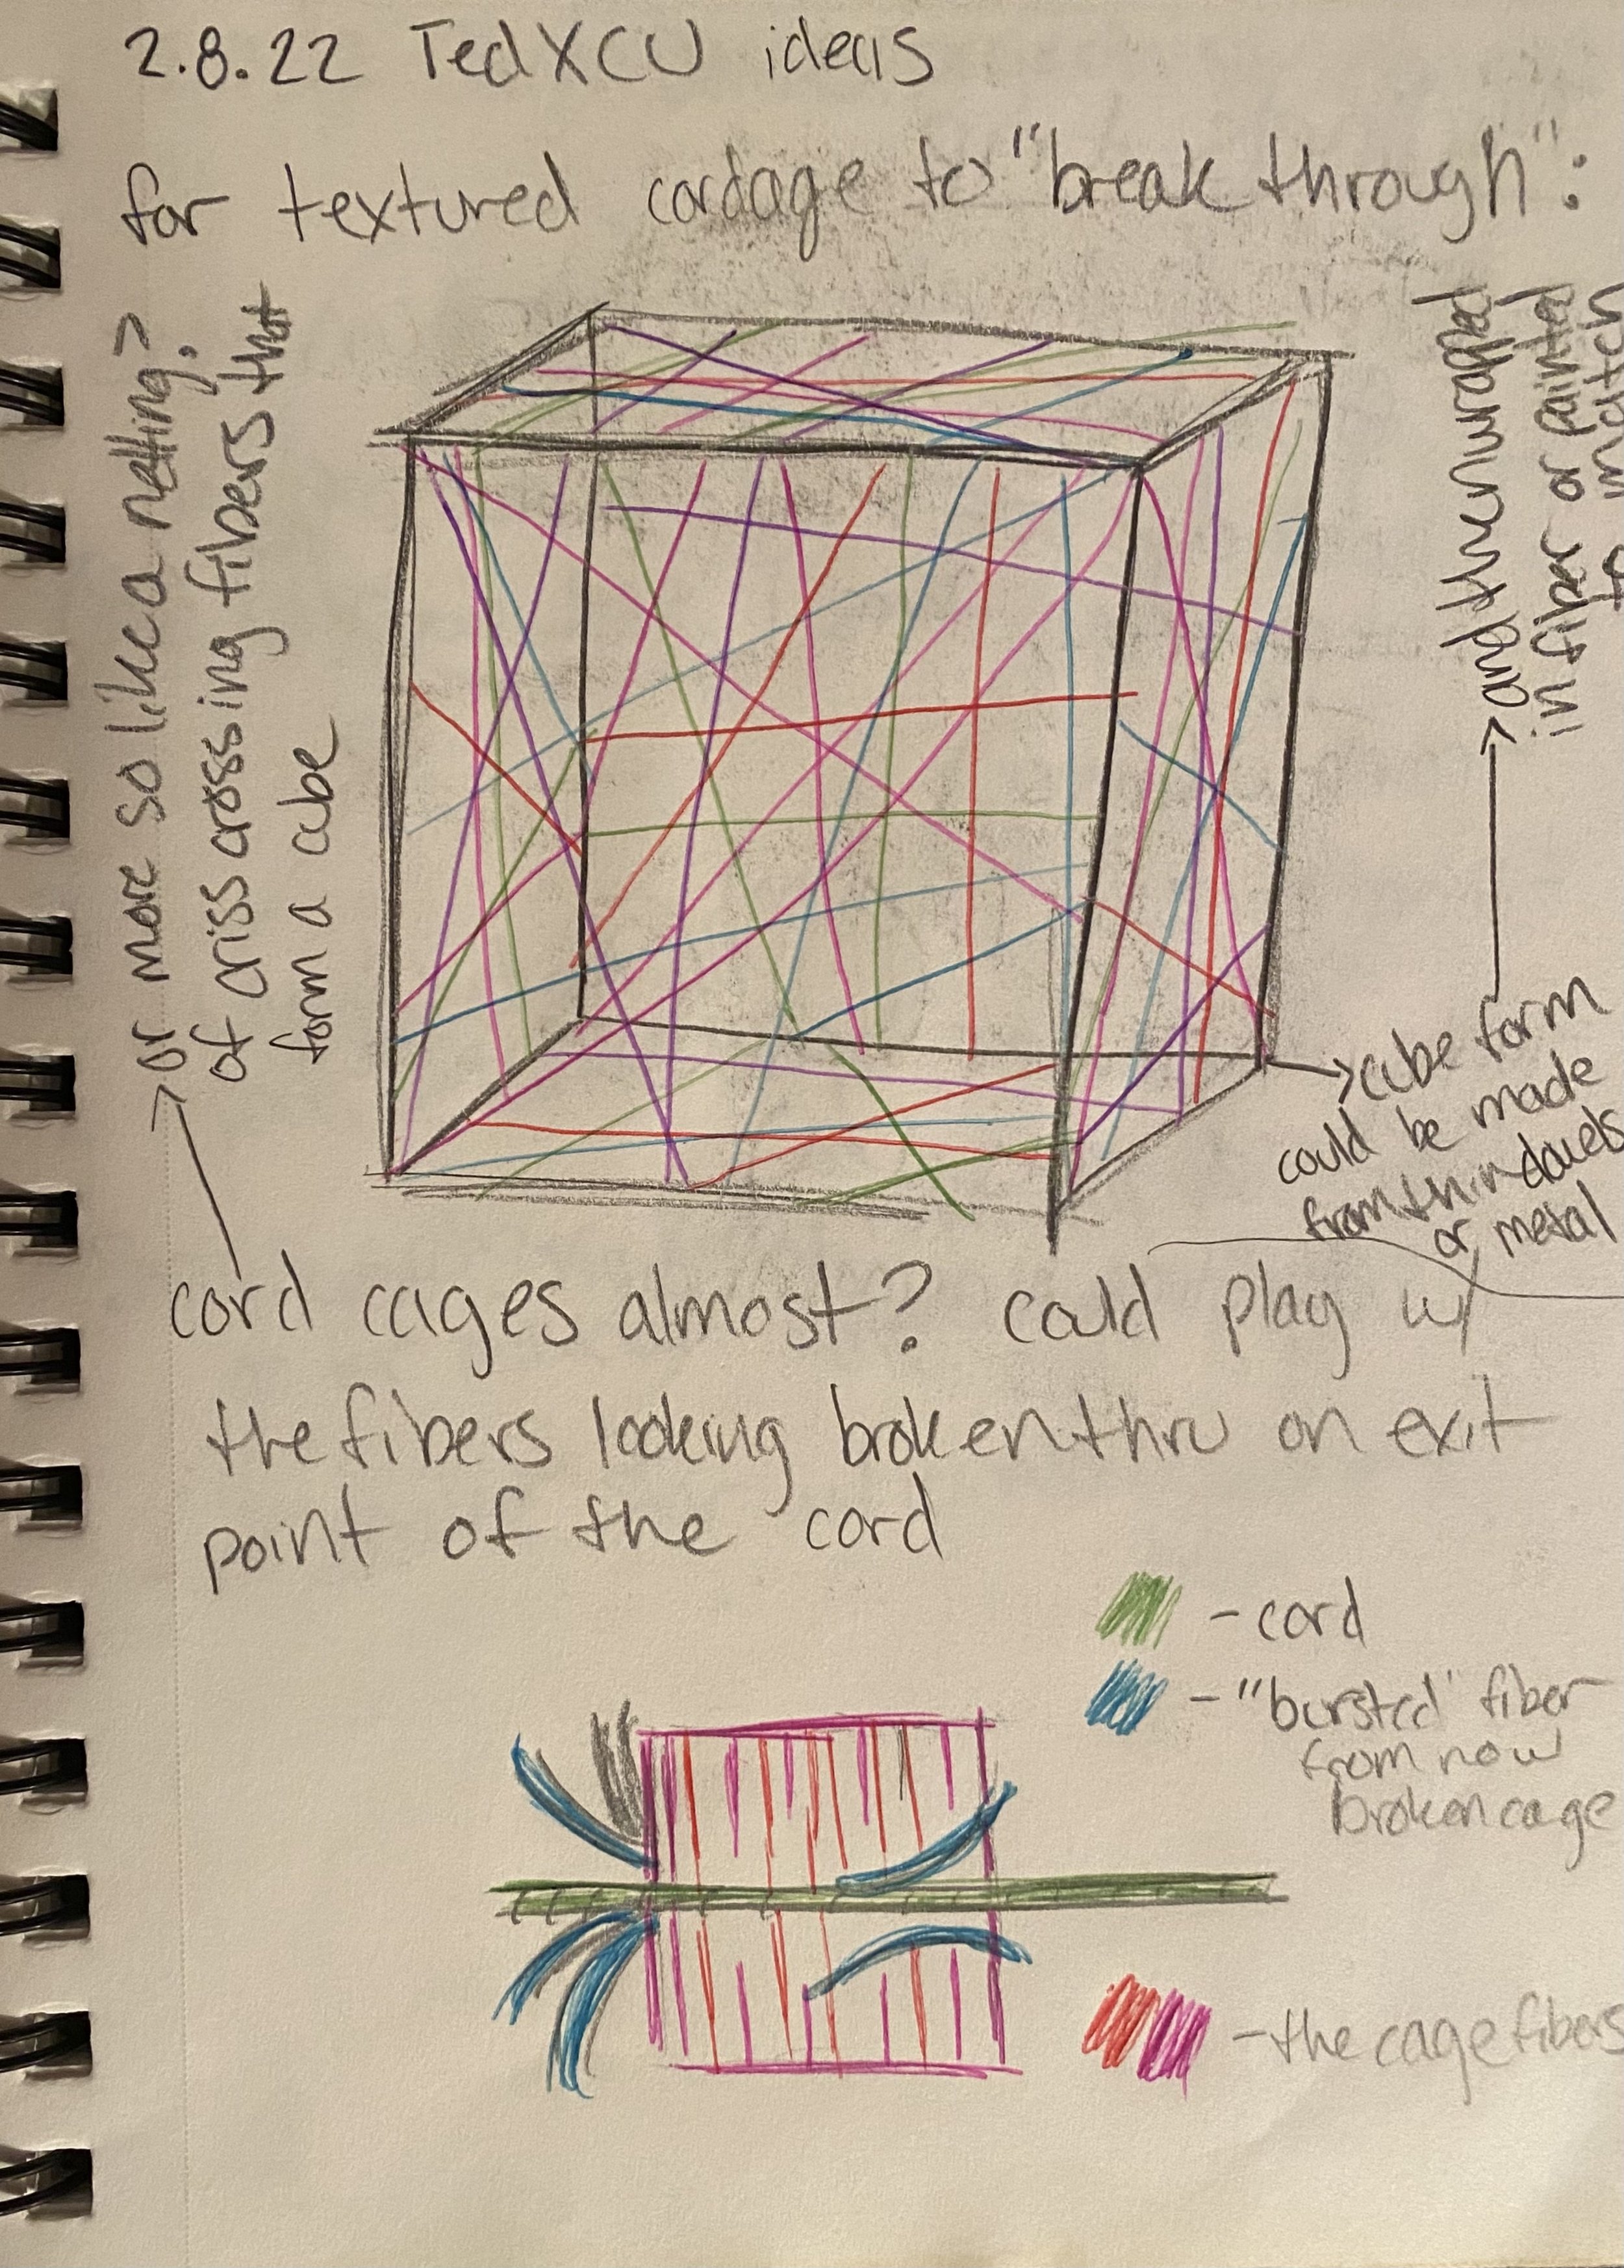 2.8.22 TedXCU ideas
for textured cordage to "break through":
or more so like a netting?
of criss crossing fibers that
form a cube
and then wrapped
in fiber or painted
to match
cube form
could be made
from thin dowels
or metal
cord cages almost? could play w/
the fibers looking broken thru on exit
point of the cord
- cord
- "bursted" fiber
from now
broken cage
- the cage fibers